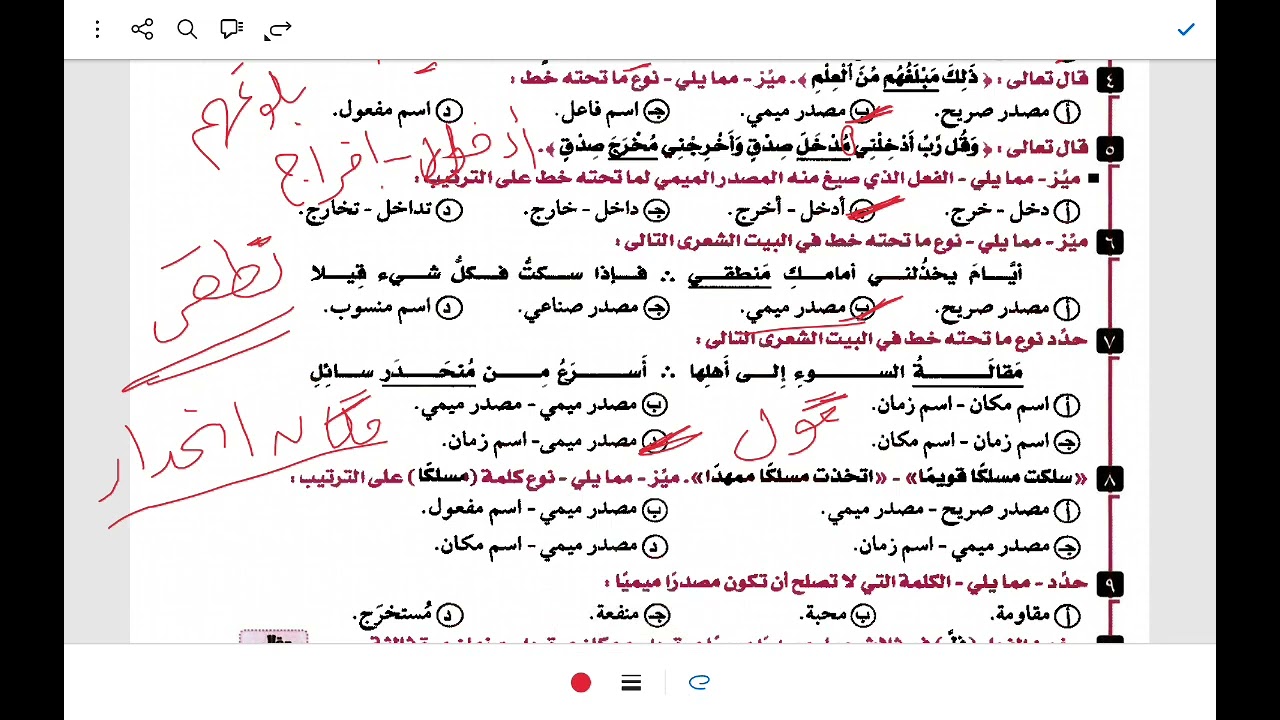 ٤ قال تعالى : ﴿ ذَلِكَ مَبْلَغُهُم مِّنَ ٱلْعِلْمِ ﴾. ميِّز - مما يلي - نوع ما تحته خط :
أ مصدر صريح. ب مصدر ميمي. جـ اسم فاعل. د اسم مفعول.
بلوغهم
٥ قال تعالى : ﴿ وَقُل رَّبِّ أَدْخِلْنِي مُدْخَلَ صِدْقٍ وَأَخْرِجْنِي مُخْرَجَ صِدْقٍ ﴾.
■ ميِّز - مما يلي - الفعل الذي صيغ منه المصدر الميمي لما تحته خط على الترتيب :
أ دخل - خرج. ب أدخل - أخرج. جـ داخل - خارج. د تداخل - تخارج.
٦ ميِّز - مما يلي - نوع ما تحته خط في البيت الشعرى التالى :
أيَّامَ يخذُلني أمامكِ مَنطقي ∴ فإذا سكتُّ فكلُّ شيء قِيلا
أ مصدر صريح. ب مصدر ميمي. جـ مصدر صناعي. د اسم منسوب.
٧ حدِّد نوع ما تحته خط في البيت الشعرى التالى :
مَقالَةُ السوءِ إلى أَهلِها ∴ أَسرَعُ مِن مُنحَدَرٍ سائِلِ
أ اسم مكان - اسم زمان. ب مصدر ميمي - مصدر ميمي.
جـ اسم زمان - اسم مكان. د مصدر ميمى - اسم زمان.
مكانه انحدار
٨ «سلكت مسلكًا قويمًا» - «اتخذت مسلكًا ممهدًا». ميِّز - مما يلي - نوع كلمة (مسلكًا) على الترتيب :
أ مصدر صريح - مصدر ميمي. ب مصدر ميمي - اسم مفعول.
جـ مصدر ميمي - اسم زمان. د مصدر ميمي - اسم مكان.
٩ حدِّد - مما يلي - الكلمة التي لا تصلح أن تكون مصدرًا ميميًا :
أ مقاومة. ب محبة. جـ منفعة. د مُستخرَج.